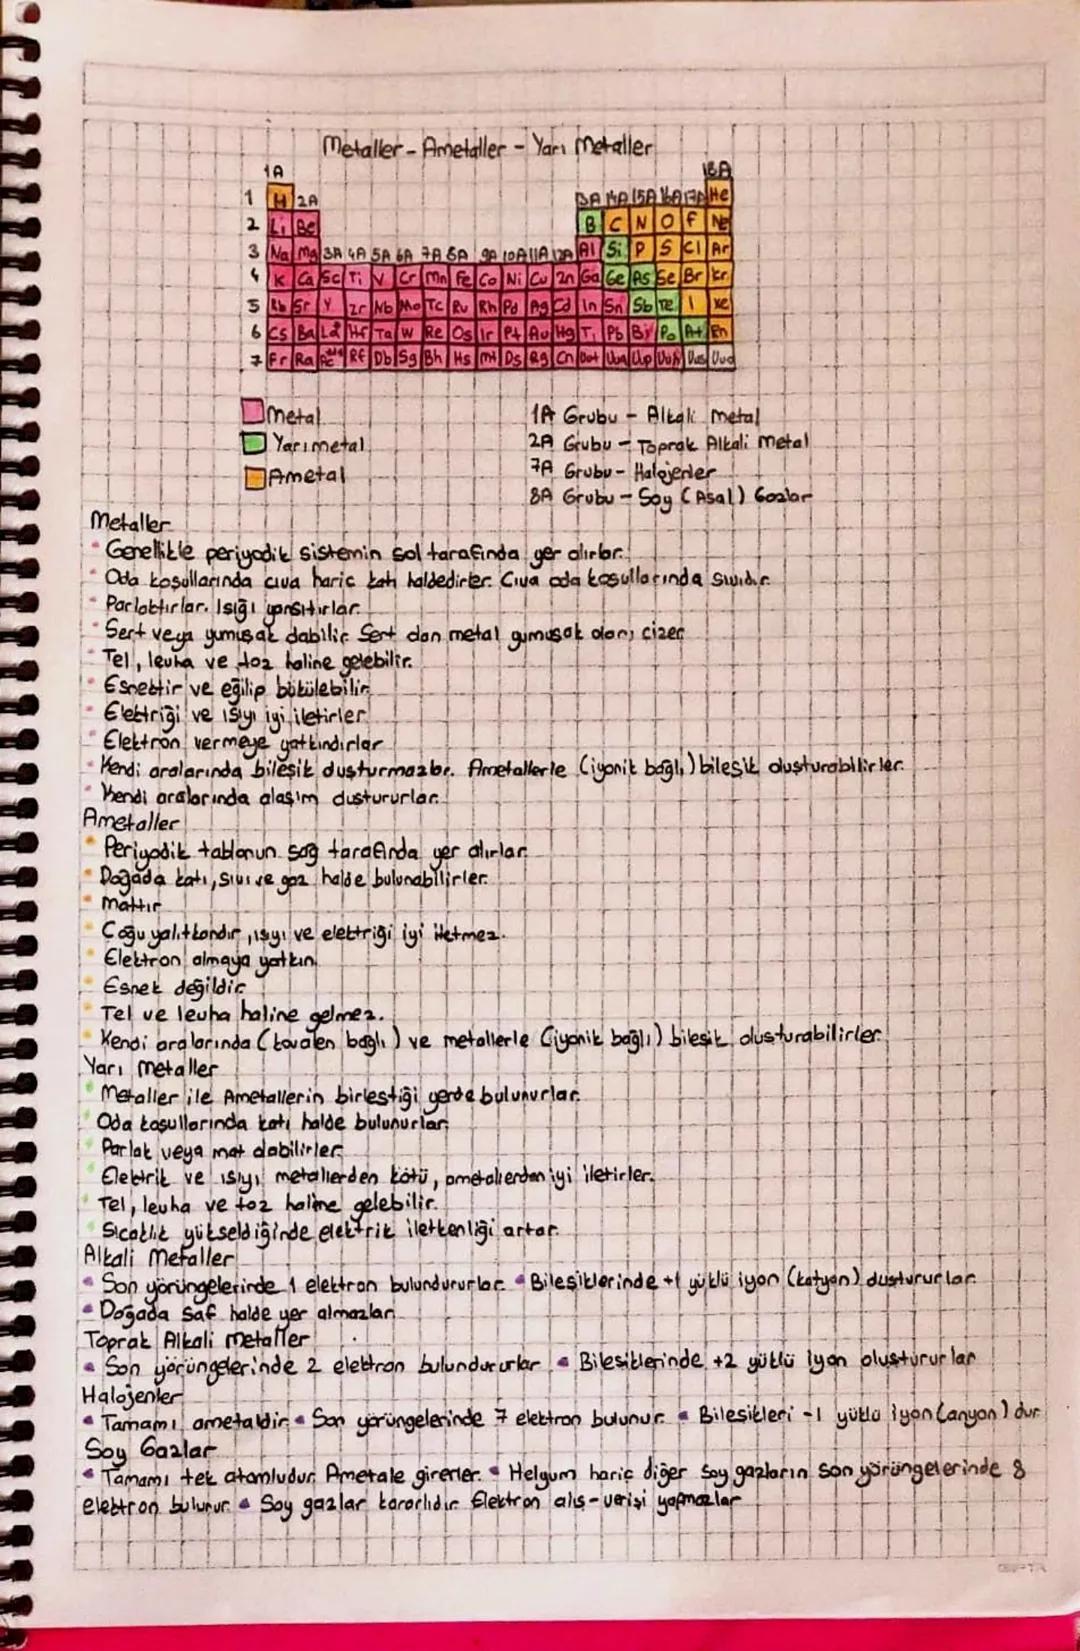 Metaller - Ametaller - Yarı Metaller
1A 18A
1 H 2A 3A 14A 15A 16A 17A He
2 Li Be B C N O F Ne
3 Na Mg 3A 4A 5A 6A 7A 8A 9A 10A 11A 12A Al Si P S Cl Ar
4 K Ca Sc Ti V Cr Mn Fe Co Ni Cu Zn Ga Ge As Se Br Kr
5 Rb Sr Y Zr Nb Mo Tc Ru Rh Pd Ag Cd In Sn Sb Te I Xe
6 Cs Ba La Hf Ta W Re Os Ir Pt Au Hg T. Pb Bi Po At Rn
7 Fr Ra Rf Db Sg Bh Hs Mt Ds Rg Cn Uut Uuq Uup Uuh Uus Uuo
Metal 1A Grubu - Alkali Metal
Yarı metal 2A Grubu - Toprak Alkali Metal
Ametal 7A Grubu - Halojenler
8A Grubu - Soy (Asal) Gazlar
Metaller
Genellikle periyodik sistemin sol tarafında yer alırlar.
Oda koşullarında cıva hariç katı haldedirler. Cıva oda koşullarında sıvıdır.
Parlaktırlar. Işığı yansıtırlar.
Sert veya yumuşak olabilir. Sert olan metal yumuşak olanı çizer.
Tel, levha ve toz haline gelebilir.
Esnektir ve eğilip bükülebilir.
Elektriği ve ısıyı iyi iletirler.
Elektron vermeye yatkındırlar
Kendi aralarında bileşik oluşturmazlar. Ametallerle (iyonik bağlı) bileşik oluşturabilirler.
Kendi aralarında alaşım oluştururlar.
Ametaller
Periyodik tablonun sağ tarafında yer alırlar.
Doğada katı, sıvı ve gaz halde bulunabilirler.
Mattır
Çoğu yalıtkandır, ısıyı ve elektriği iyi iletmez.
Elektron almaya yatkın
Esnek değildir.
Tel ve levha haline gelmez.
Kendi aralarında (kovalen bağlı) ve metallerle (iyonik bağlı) bileşik oluşturabilirler.
Yarı Metaller
Metaller ile Ametallerin birleştiği yerde bulunurlar.
Oda koşullarında katı halde bulunurlar.
Parlak veya mat olabilirler.
Elektrik ve ısıyı metallerden kötü, ametallerden iyi iletirler.
Tel, levha ve toz haline gelebilir.
Sıcaklık yükseldiğinde elektrik iletkenliği artar.
Alkali Metaller
Son yörüngelerinde 1 elektron bulundururlar. Bileşiklerinde +1 yüklü iyon (katyon) oluştururlar.
Doğada saf halde yer almazlar.
Toprak Alkali Metaller
Son yörüngelerinde 2 elektron bulundururlar Bileşiklerinde +2 yüklü iyon oluştururlar
Halojenler
Tamamı ametaldir. Son yörüngelerinde 7 elektron bulunur. Bileşikleri -1 yüklü iyon (anyon) dur.
Soy Gazlar
Tamamı tek atomludur. Ametale girerler. Helyum hariç diğer soy gazların son yörüngelerinde 8
elektron bulunur. Soy gazlar kararlıdır. Elektron alış-verişi yapmazlar